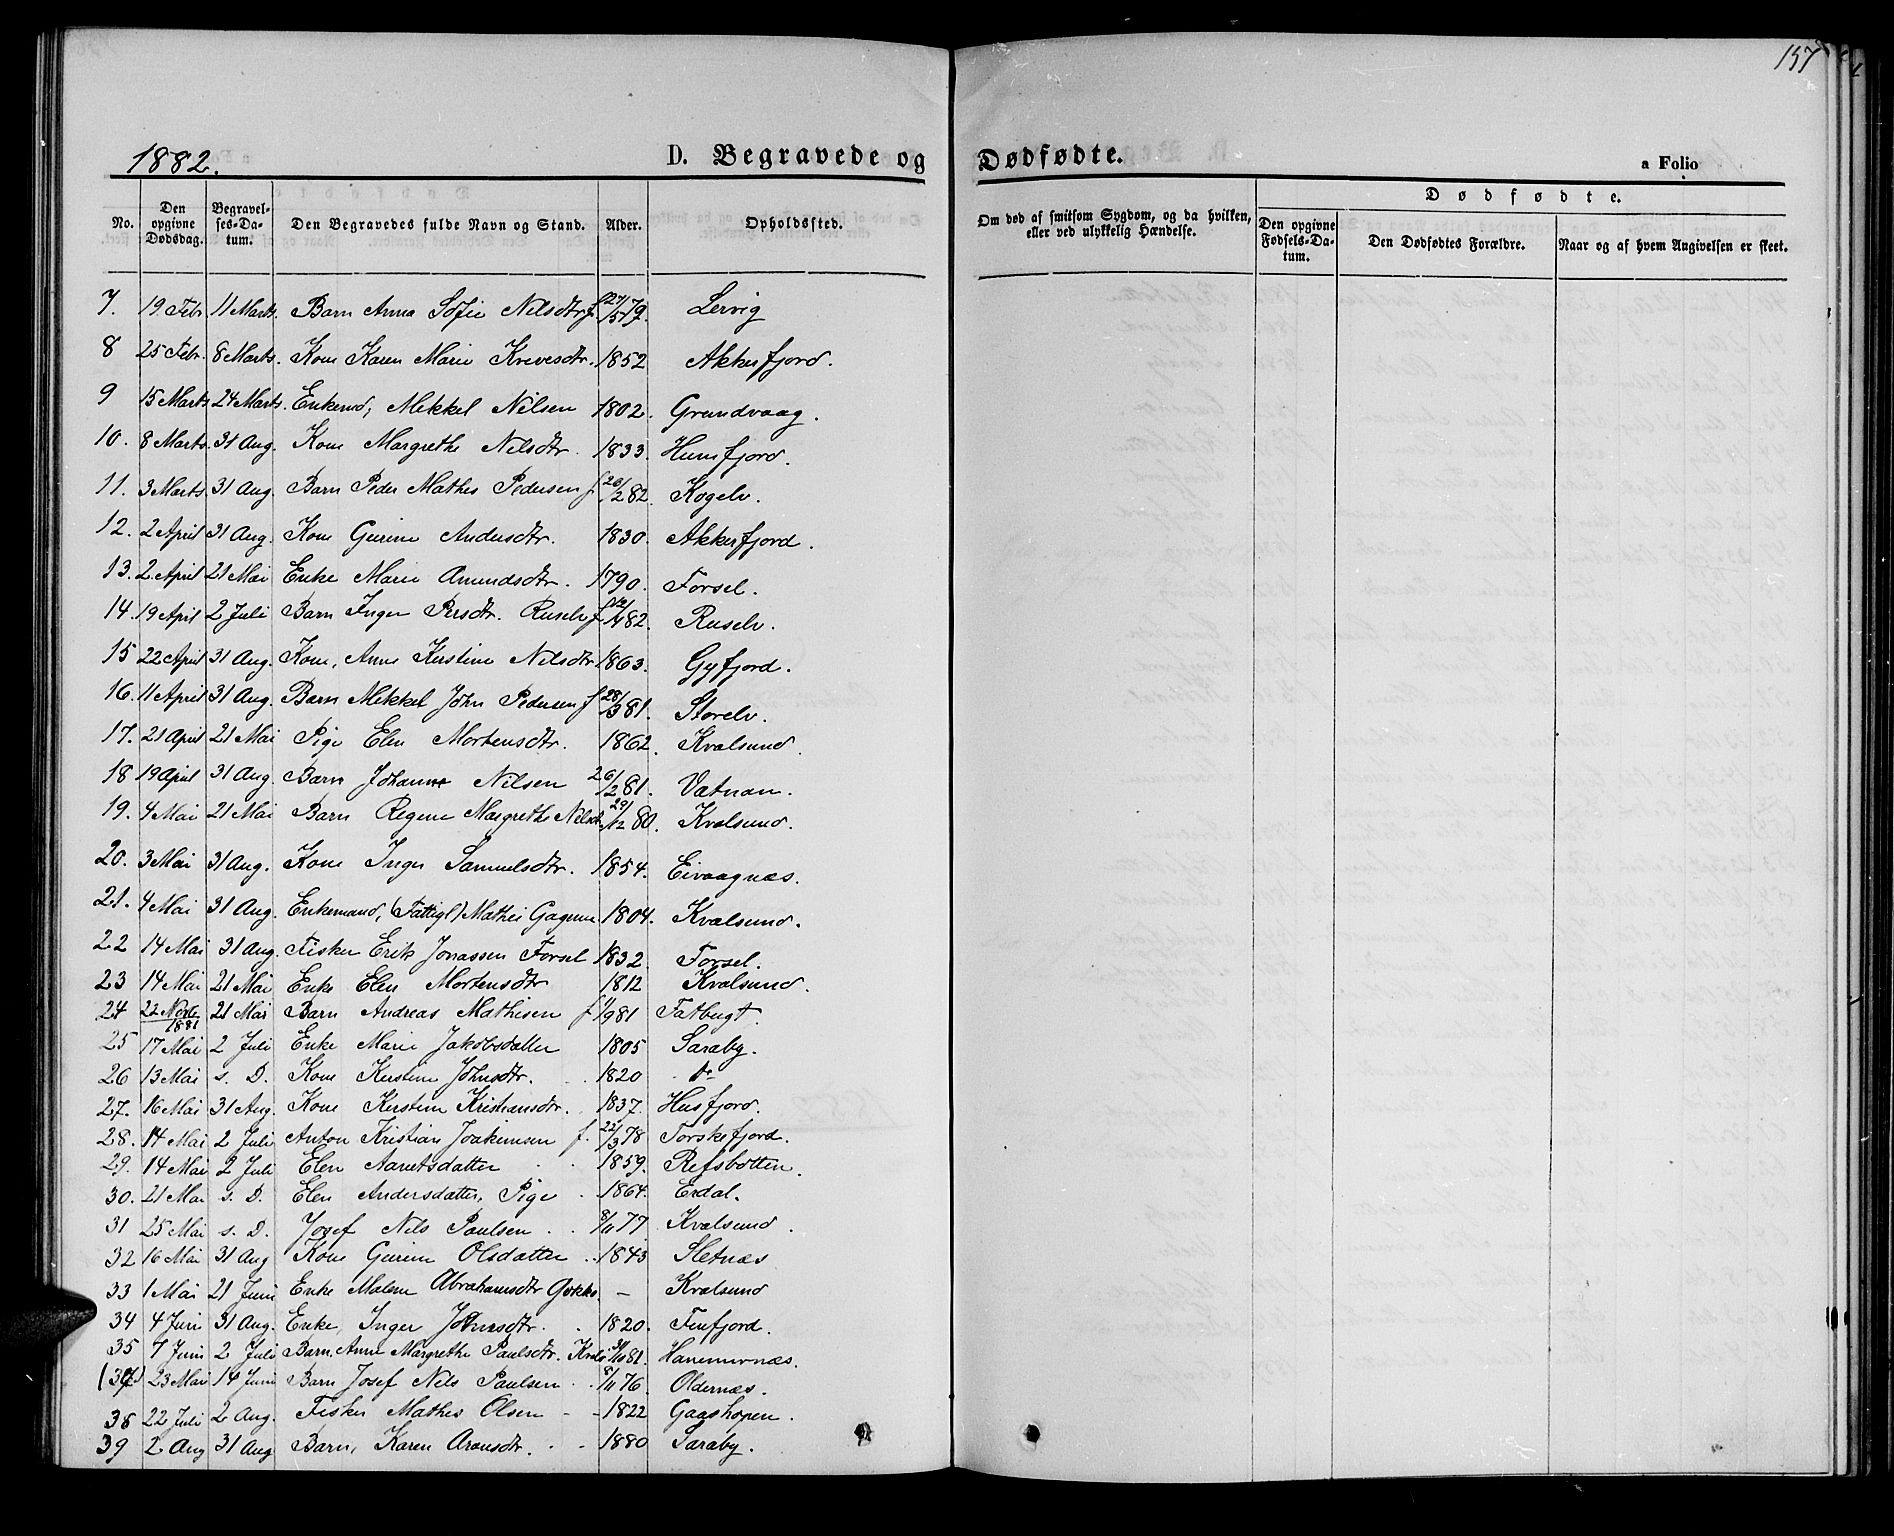 157
1882.
D. Begravede og Dødfødte.
a Folio
No.
Den opgivne Dødsdag.
Begravelses-Datum.
Den Begravedes fulde Navn og Stand.
Alder.
Opholdssted.
Om død af smitsom Sygdom, og da hvilken, eller ved ulykkelig Hændelse.
Dødfødte.
Den opgivne Fødsels-Datum.
Den Dødfødtes Forældre.
Naar og af hvem Angivelsen er skeet.
7. 19 Febr 11 Marts. Barn Anna Sofie Nilsdtr f 27/5 79. Lervig
8 25 Febr. 8 Marts. Kone Karen Marie Krevesdtr. 1852 Akkerfjord.
9 15 Marts 24 Marts. Enkemd, Mekkel Nilsen 1802. Grundvaag.
10. 8 Marts. 31 Aug. Kone Margrethe Nilsdtr. 1833. Humfjord.
11. 3 Marts 31 Aug. Barn Peder Mathis Pedersen f 26/2 82. Kogelv.
12. 2 April 31 Aug. Kone Gurine Andersdtr. 1830. Akkerfjord.
13. 2 April 21 Mai Enke Marie Amundsdtr. 1790. Forsel.
14. 19 April 2 Juli Barn Inger Persdtr. Ruselv f 82. Ruselv.
15 22 April 31 Aug. Kone, Anne Kerstine Nilsdtr 1863. Gyfjord.
16. 11 April 31 Aug. Barn Mekkel John Pedersen f 28/3 81. Storelv.
17. 21 April 21 Mai Pige Elen Mortensdtr. 1862. Kvalsund.
18 19 April 31 Aug. Barn Johanne Nilsen 26/2 81. Vatnan.
19. 4 Mai 21 Mai Barn Regine Margrethe Nilsdtr 29/12 80. Kvalsund.
20. 3 Mai 31 Aug. Kone Inger Samuelsdtr. 1854. Eivaagnæs.
21. 4 Mai 31 Aug. Enkemand, (Fattigl) Mathis Gagnum 1804. Kvalsund.
22 14 Mai 31 Aug. Fisker Erik Jonassen Forsel 1832. Forsel.
23 14 Mai 21 Mai Enke Elen Mortensdtr 1812 Kvalsund.
24 22 Novbr 1881 21 Mai Barn Andreas Mathisen f 1/9 81 Fatbugt.
25 17 Mai 2 Juli Enke Marie Jakobsdatter 1805 Saraby.
26 13 Mai s. D. Kone Kerstine Johnsdtr. 1820 do
27. 16 Mai 31 Aug. Kone Kerstine Kristiansdtr. 1837. Husfjord.
28. 14 Mai 2 Juli Anton Kristian Joakimsen f. 22/3 78 Torskefjord.
29. 14 Mai 2 Juli Elen Aanetsdatter 1859. Refsbotten.
30. 21 Mai s. D. Elen Andersdatter, Pige 1864. Erdal.
31 25 Mai s. D. Josef Nils Paulsen 8/11 77. Kvalsund.
32 16 Mai 31 Aug Kone Gurine Olsdatter 1843 Sletnæs
33 1 Mai 21 Juni Enke Malene Abrahamsdtr Gokko. — Kvalsund
34 4 Juni 31 Aug. Enke, Inger Johnsdtr. 1820. Finfjord.
35 7 Juni 2 Juli Barn, Anne Margrethe Paulsdtr. 31/10 81. Hanemernæs.
(37) 23 Mai 14 Juni Barn Josef Nils Paulsen 8/11 76. Oldernæs.
38 22 Juli 2 Aug. Fisker Mathis Olsen 1822 Gaashopen.
39 2 Aug 31 Aug Barn, Karen Aronsdtr. 1880 Saraby.